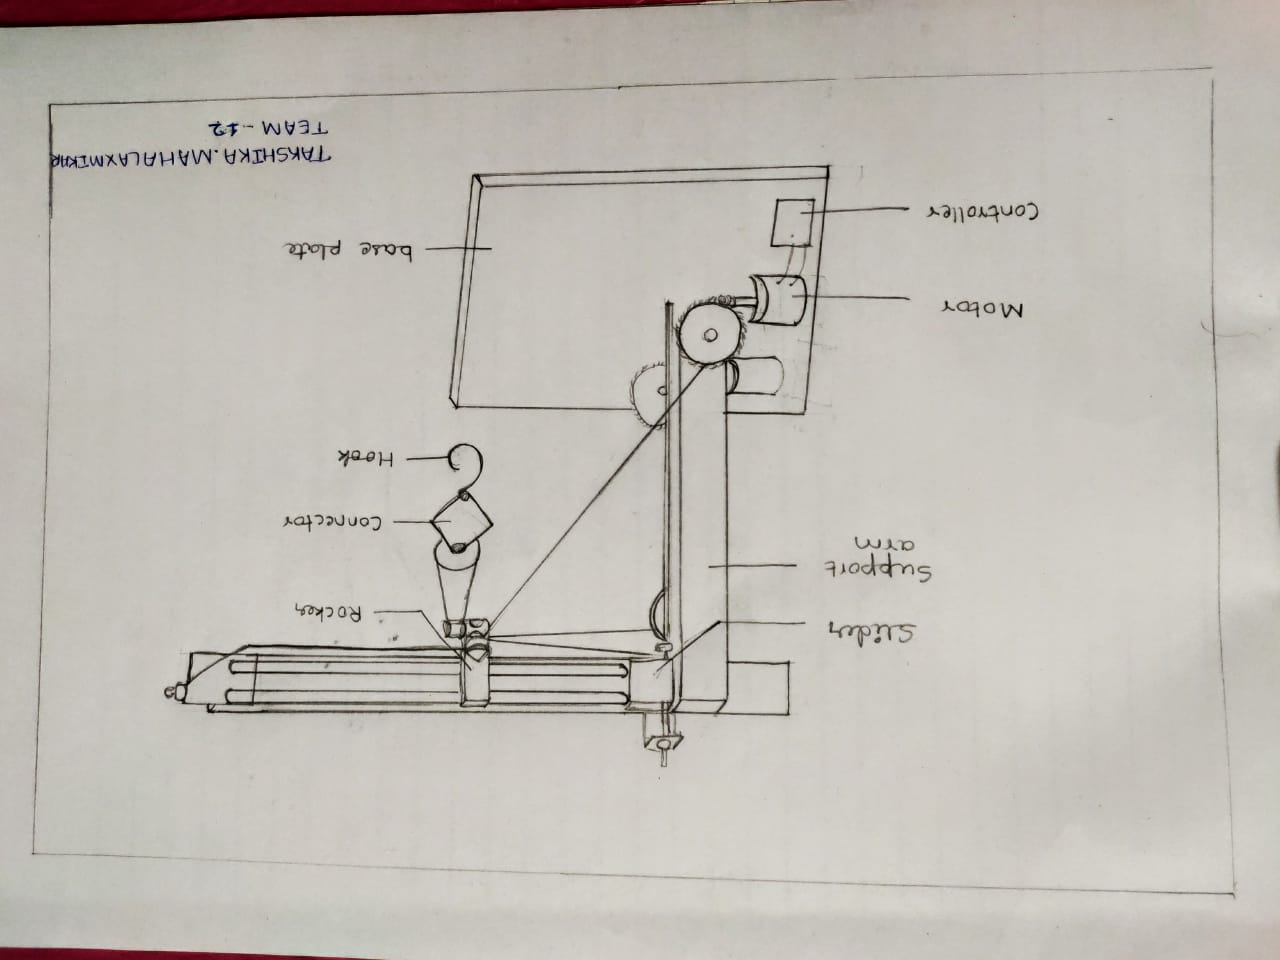 Slider
Support
arm
Rocker
Connector
Hook
Motor
Controller
base plate
TAKSHIKA.MAHALAXMIKAR
TEAM - 12